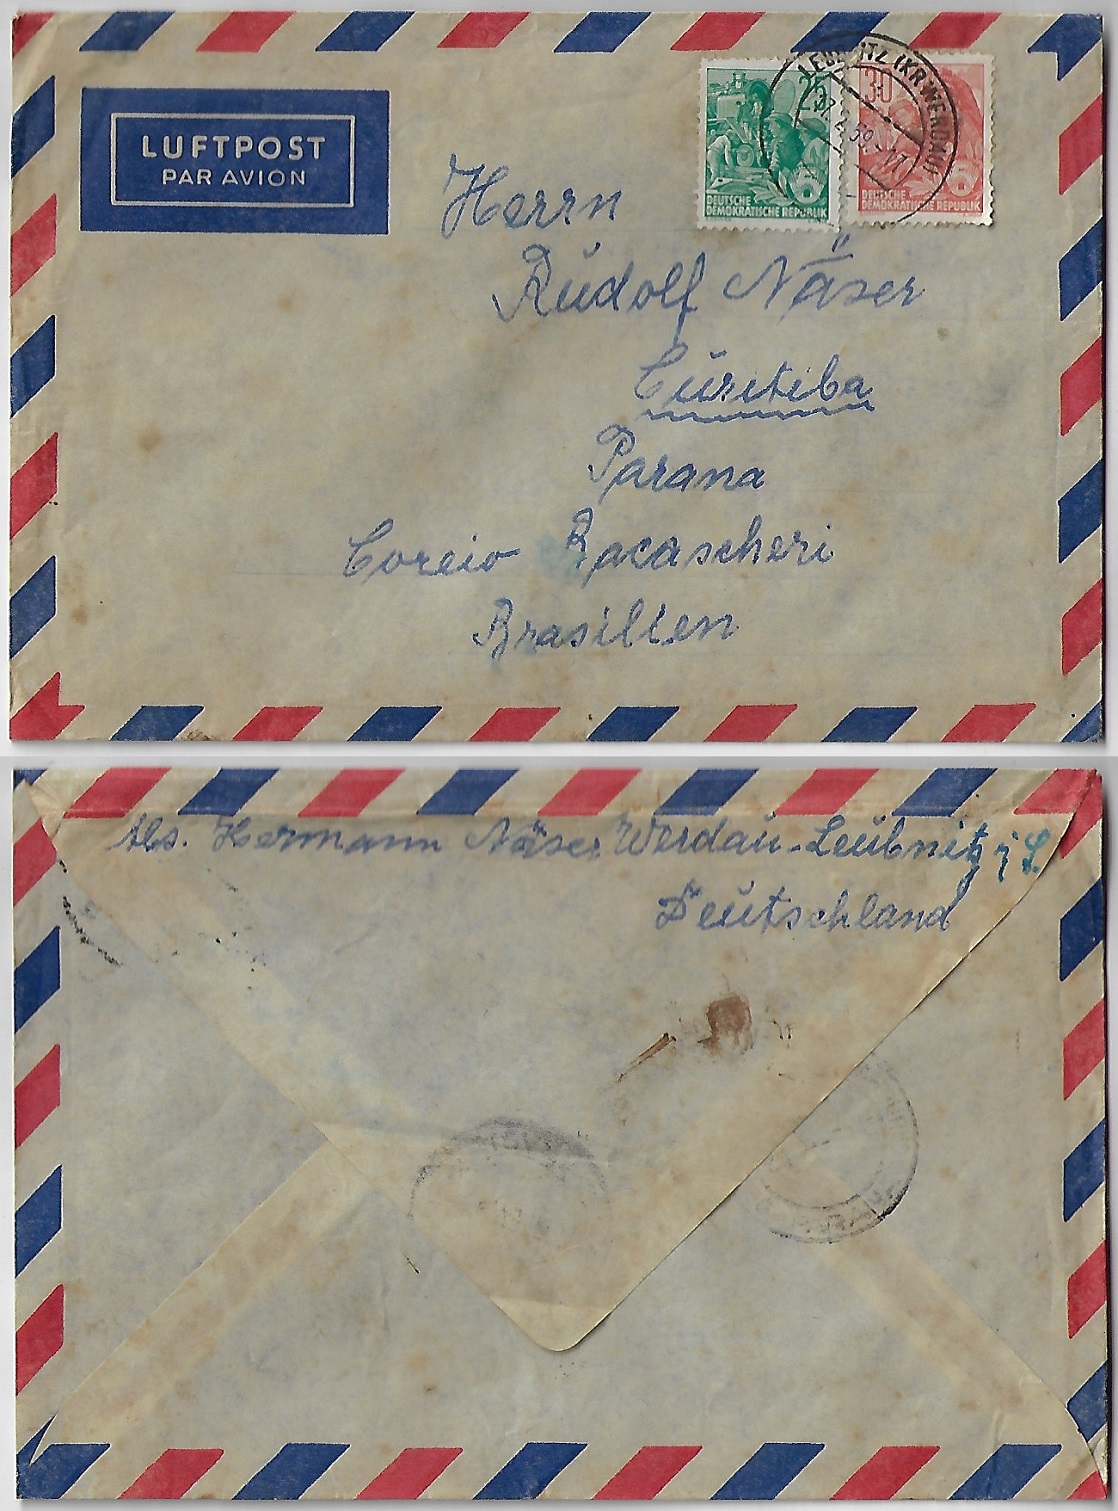 LUFTPOST
PAR AVION
25
DEUTSCHE
DEMOKRATISCHE REPUBLIK
30
DEUTSCHE
DEMOKRATISCHE REPUBLIK
LEUBNITZ (KR WERDAU)
Herrn
Rudolf Näser
Curitiba
Parana
Coreio Bacascheri
Brasilien
Abs. Hermann Näser Werdau-Leubnitz i/S.
Deutschland